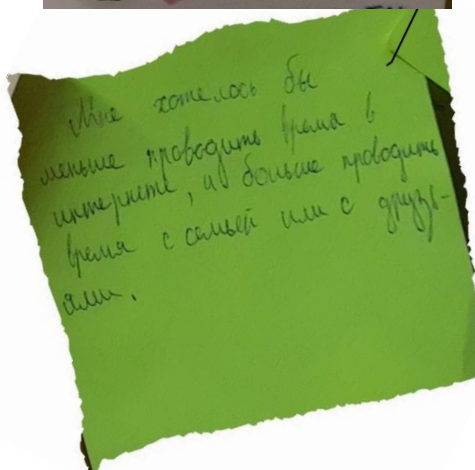 Мне хотелось бы
меньше проводить время в
интернете, и больше проводить
время с семьей или с друзь-
ями.